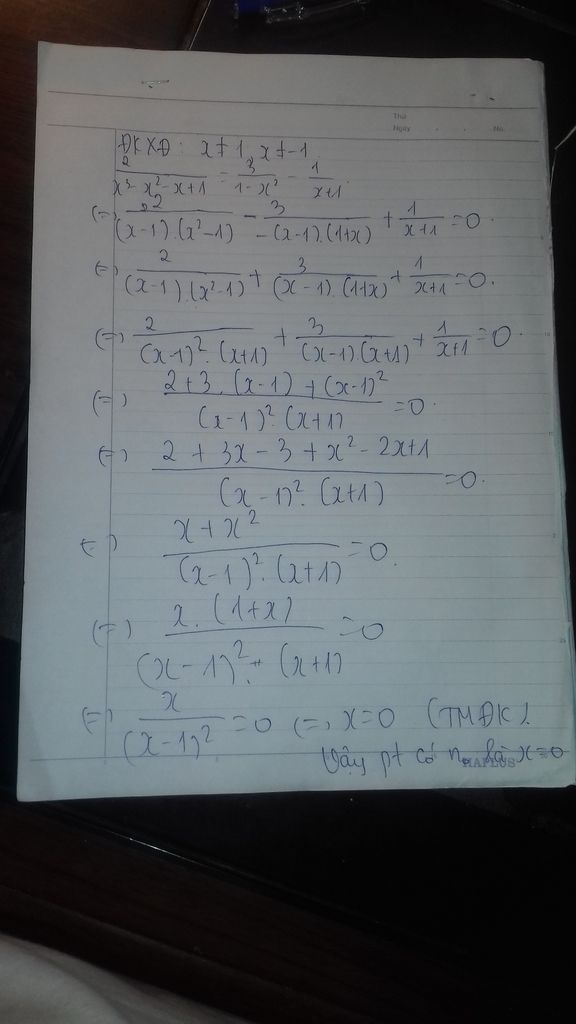 Thứ
Ngày . . No.
ĐKXĐ: x ≠ 1, x ≠ -1
2/(x³ - x² - x + 1) = 3/(1 - x²) - 1/(x+1).
(=) 2/((x-1).(x²-1)) - 3/(-(x-1).(1+x)) + 1/(x+1) = 0.
(=) 2/((x-1).(x²-1)) + 3/((x-1).(1+x)) + 1/(x+1) = 0.
(=) 2/((x-1)².(x+1)) + 3/((x-1).(x+1)) + 1/(x+1) = 0.
(=) (2+3.(x-1) + (x-1)²)/((x-1)².(x+1)) = 0.
(=) (2 + 3x - 3 + x² - 2x+1)/((x-1)².(x+1)) = 0.
(=) (x + x²)/((x-1)².(x+1)) = 0.
(=) (x.(1+x))/((x-1)².(x+1)) = 0
(=) x/(x-1)² = 0 (=) x=0 (TMĐK).
Vậy pt có n₀ là x=0
HAPLUS